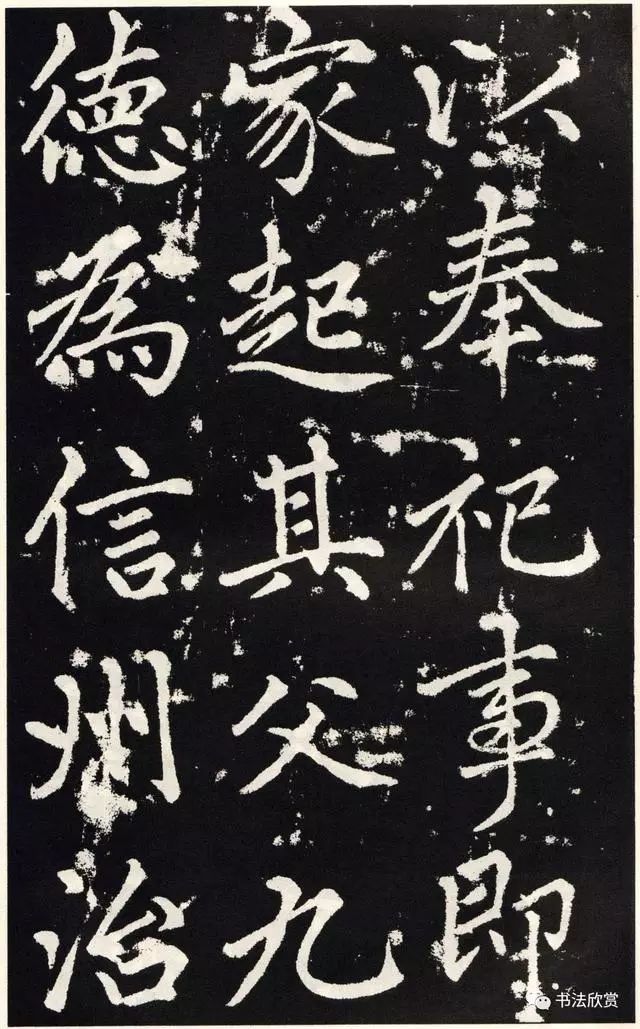 以奉祀事即
家起其父九
德為信州治
书法欣赏